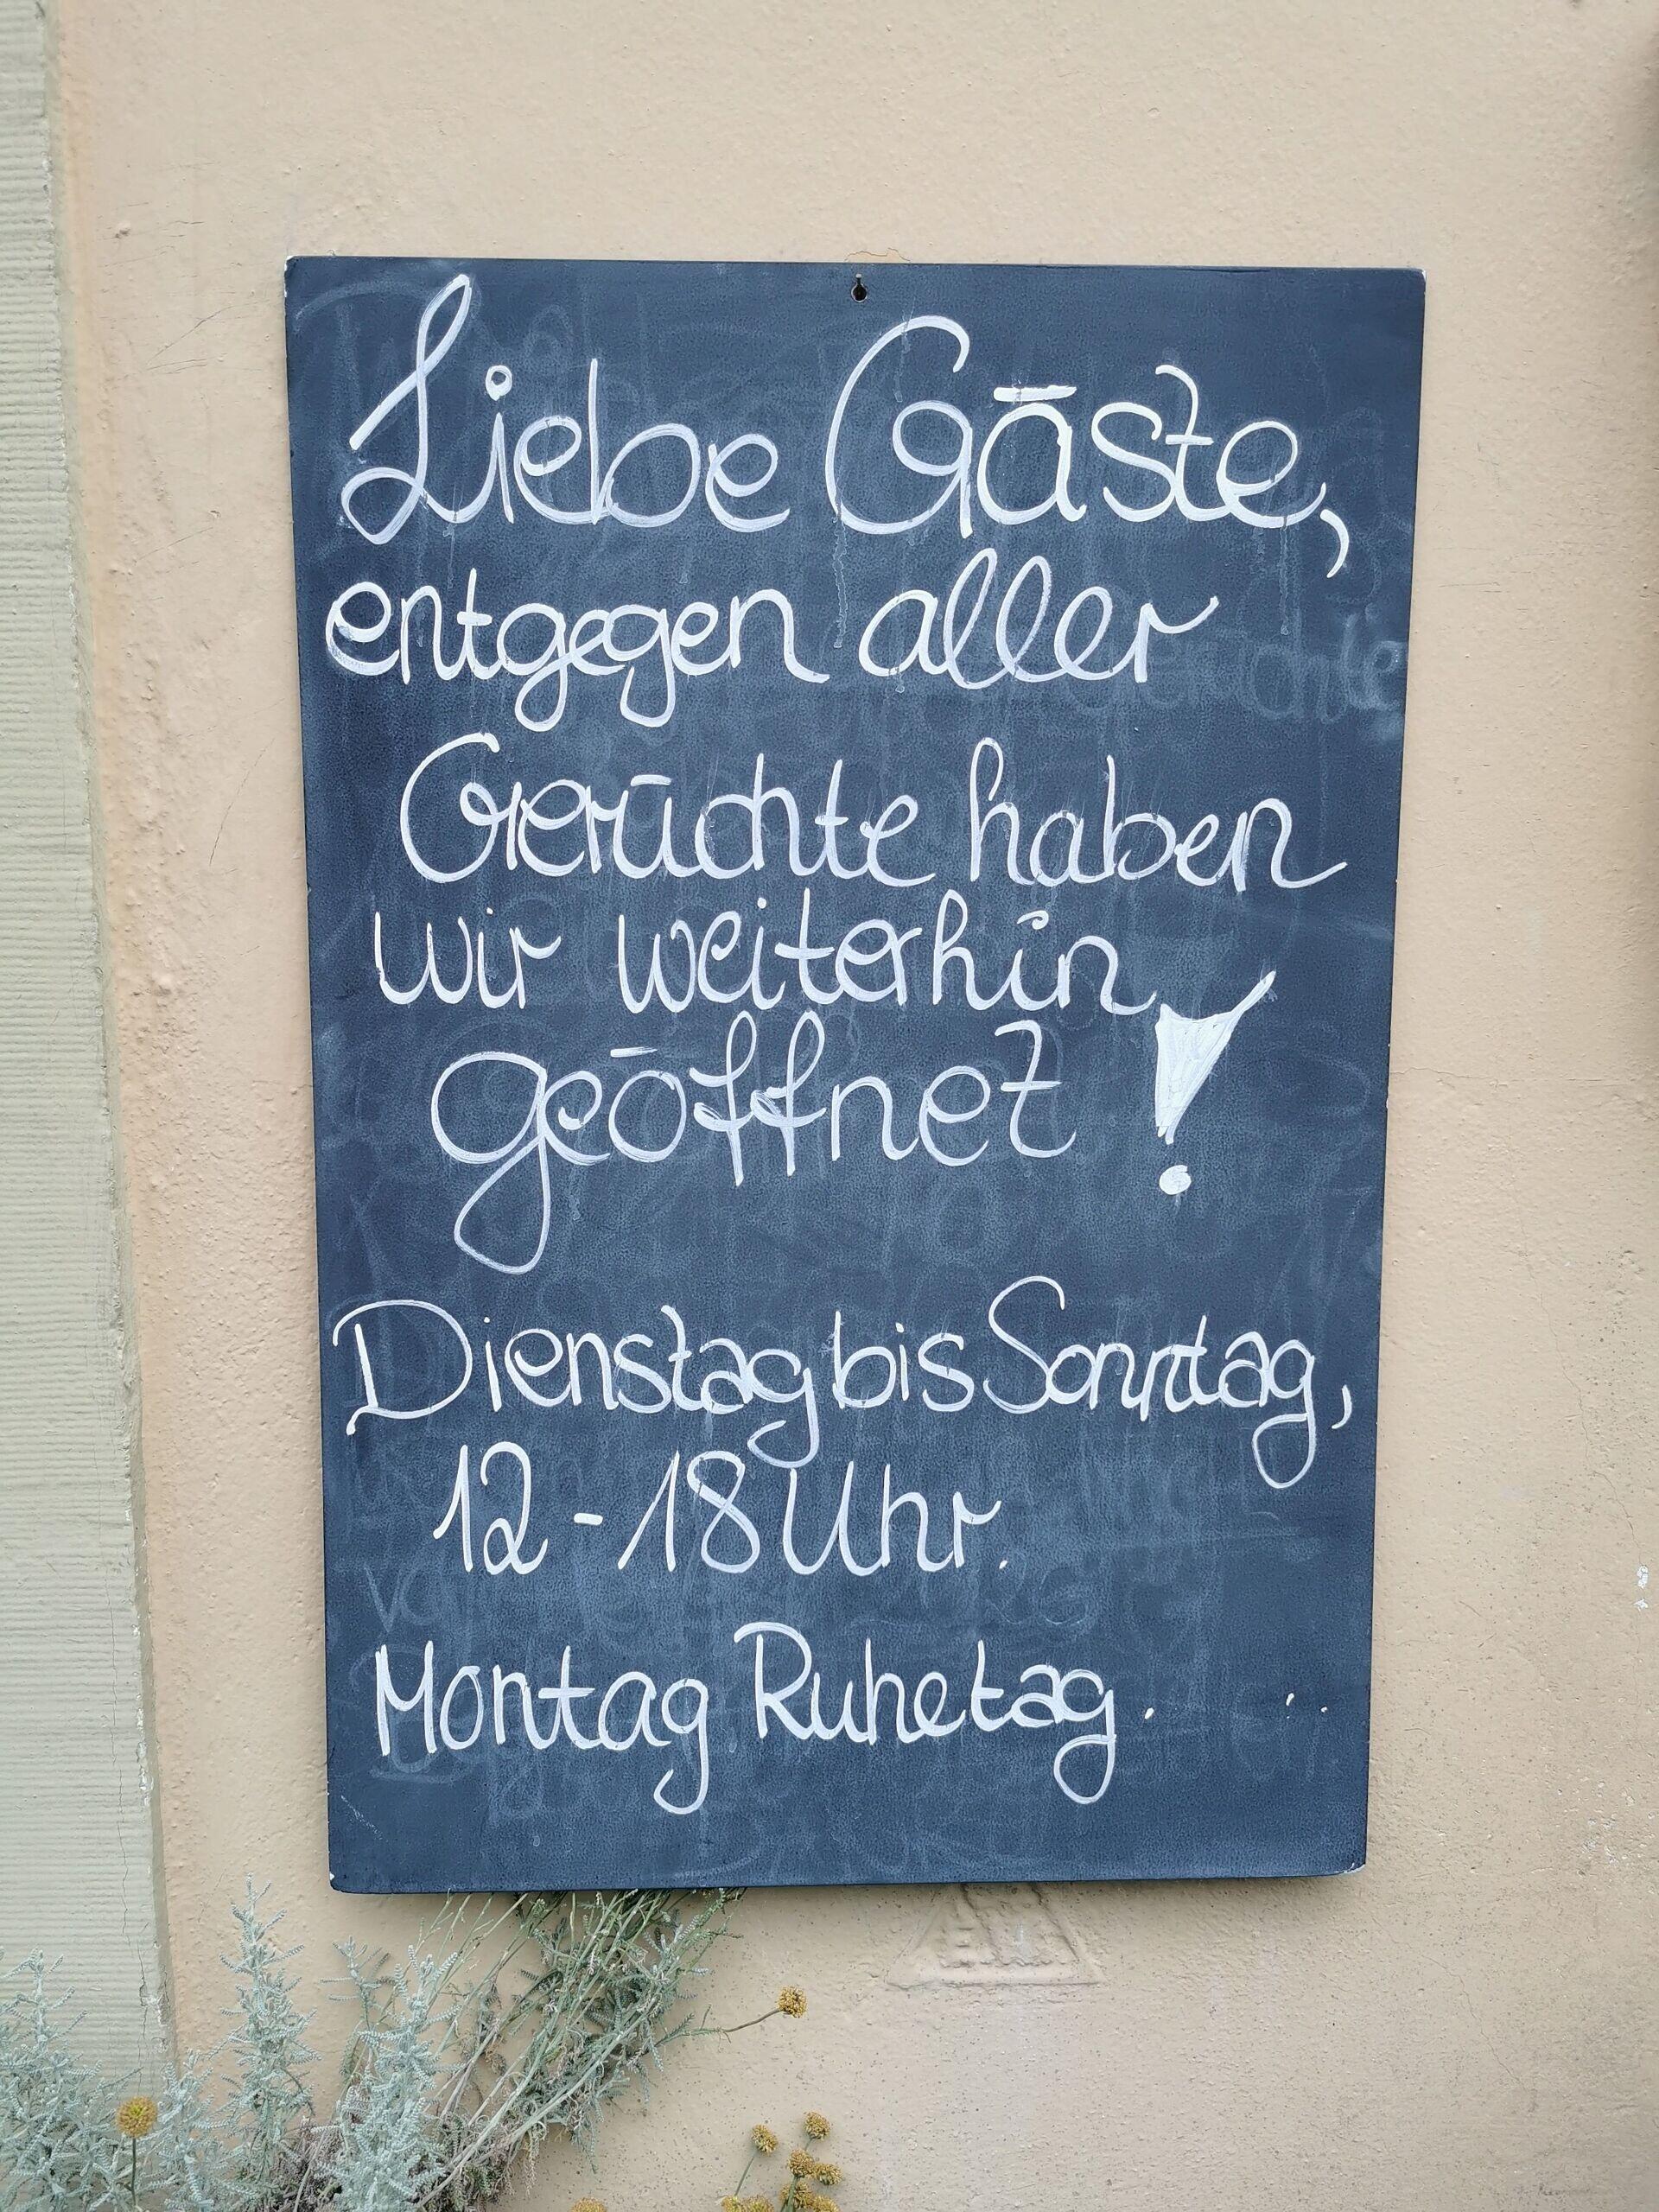 Liebe Gäste,
entgegen aller
Gerüchte haben
wir weiterhin
geöffnet!
Dienstag bis Sonntag,
12-18 Uhr.
Montag Ruhetag.